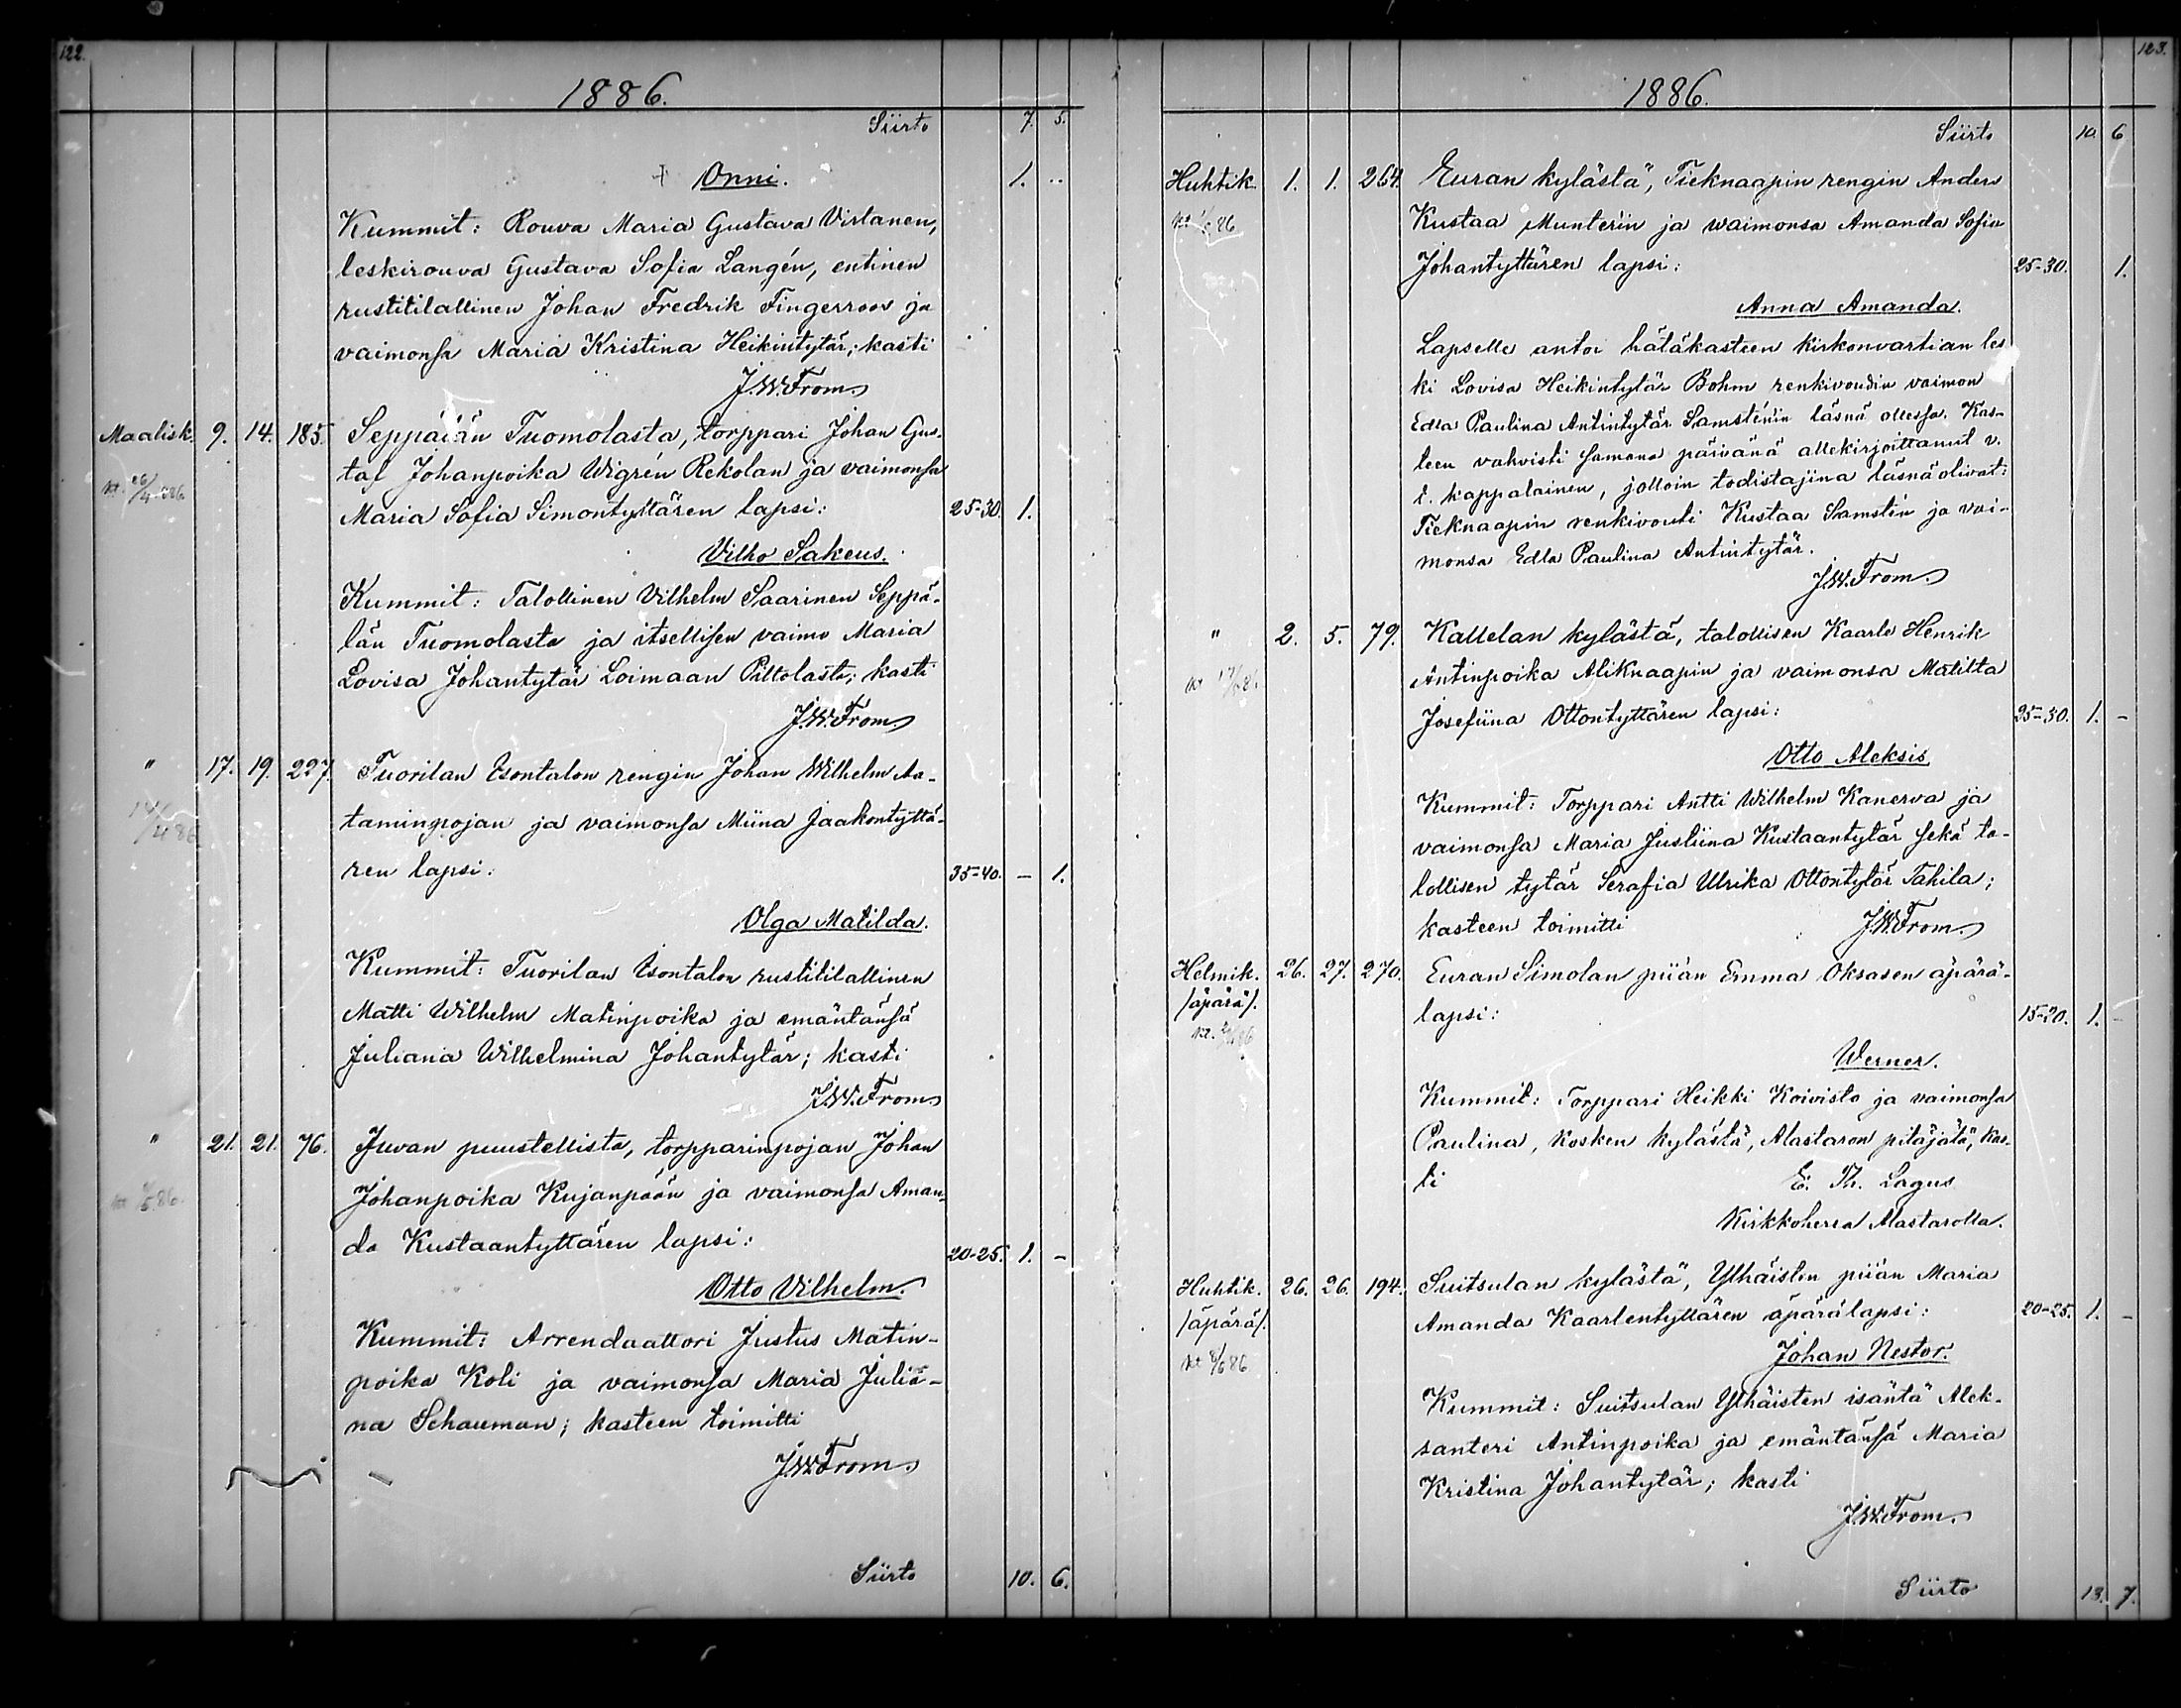 122.
1886.
Siirto 7. 5.
Onni. 1. ..
Kummit: Rouva Maria Gustava Virtanen,
leskirouva Gustava Sofia Langén, entinen
rustitilallinen Johan Fredrik Fingerroos ja
vaimonsa Maria Kristina Heikintytär; kasti
J.W.From
Maalisk. 9. 14. 185. Seppälän Tuomolasta, torppari Johan Gus-
taf Johanpoika Wigrén Rekolan ja vaimonsa
Maria Sofia Simontyttären lapsi: 25-30. 1.
Vilho Sakeus.
Kummit: Talollinen Vilhelm Saarinen Seppä-
län Tuomolasta ja itsellisen vaimo Maria
Lovisa Johantytär Loimaan Piltolasta; kasti
J.W.From
" 17. 19. 227. Tuorilan Isontalon rengin Johan Wilhelm Aa-
taminpojan ja vaimonsa Miina Jaakontyttä-
ren lapsi: 35-40. - 1.
Olga Matilda.
Kummit: Tuorilan Isontalon rustitilallinen
Matti Wilhelm Matinpoika ja emäntänsä
Juliana Wilhelmina Johantytär; kasti
J.W.From
" 21. 21. 76. Juvan puustellista, torpparinpojan Johan
Johanpoika Kujanpään ja vaimonsa Aman-
da Kustaantyttären lapsi: 20-25. 1. -
Otto Vilhelm.
Kummit: Arrendaattori Justus Matin-
poika Koli ja vaimonsa Maria Julia-
na Schauman; kasteen toimitti
J.W.From
Siirto 10. 6.
123.
1886.
Siirto 10. 6
Huhtik. 1. 1. 264. Euran kylästä, Tieknaapin rengin Anders
Kustaa Munterin ja waimonsa Amanda Sofia
Johantyttären lapsi: 25-30. 1.
Anna Amanda.
Lapselle antoi hätäkasteen kirkonvartian les
ki Lovisa Heikintytär Bohm renkivoudin vaimon
Edla Paulina Antintytär Samsténin läsnä ollessa. Kas-
teen vahvisti samana päivänä allekirjoittanut v.
t. kappalainen, jolloin todistajina läsnäolivat:
Tieknaapin renkivouti Kustaa Samstén ja vai-
monsa Edla Paulina Antintytär.
J.W.From
" 2. 5. 79. Kallelan kylästä, talollisen Kaarle Henrik
Antinpoika Aliknaapin ja vaimonsa Matilta
Josefiina Ottontyttären lapsi: 25-30. 1. -
Otto Aleksis.
Kummit: Torppari Antti Wilhelm Kanerva ja
vaimonsa Maria Justiina Kustaantytär sekä ta-
lollisen tytär Serafia Ulrika Ottontytär Tahila;
kasteen toimitti J.W.From
Helmik. 26. 27. 270. Euran Simolan piian Emma Oksasen äpärä-
/äpärä/. lapsi: 15-20. 1. -
Werner.
Kummit: Torppari Heikki Koivisto ja vaimonsa
Paulina, Kosken kylästä, Alastaron pitäjätä, kas-
ti E. Th. Lagus
Kirkkoherra Alastarolla.
Huhtik. 26. 26. 194. Suitsulan kylästä, Ylhäisten piian Maria
/äpärä/. Amanda Kaarlentyttären äpärälapsi: 20-25. 1. -
Johan Nestor.
Kummit: Suitsulan Ylhäisten isäntä Alek-
santeri Antinpoika ja emäntänsä Maria
Kristina Johantytär; kasti
J.W.From.
Siirto 13. 7.